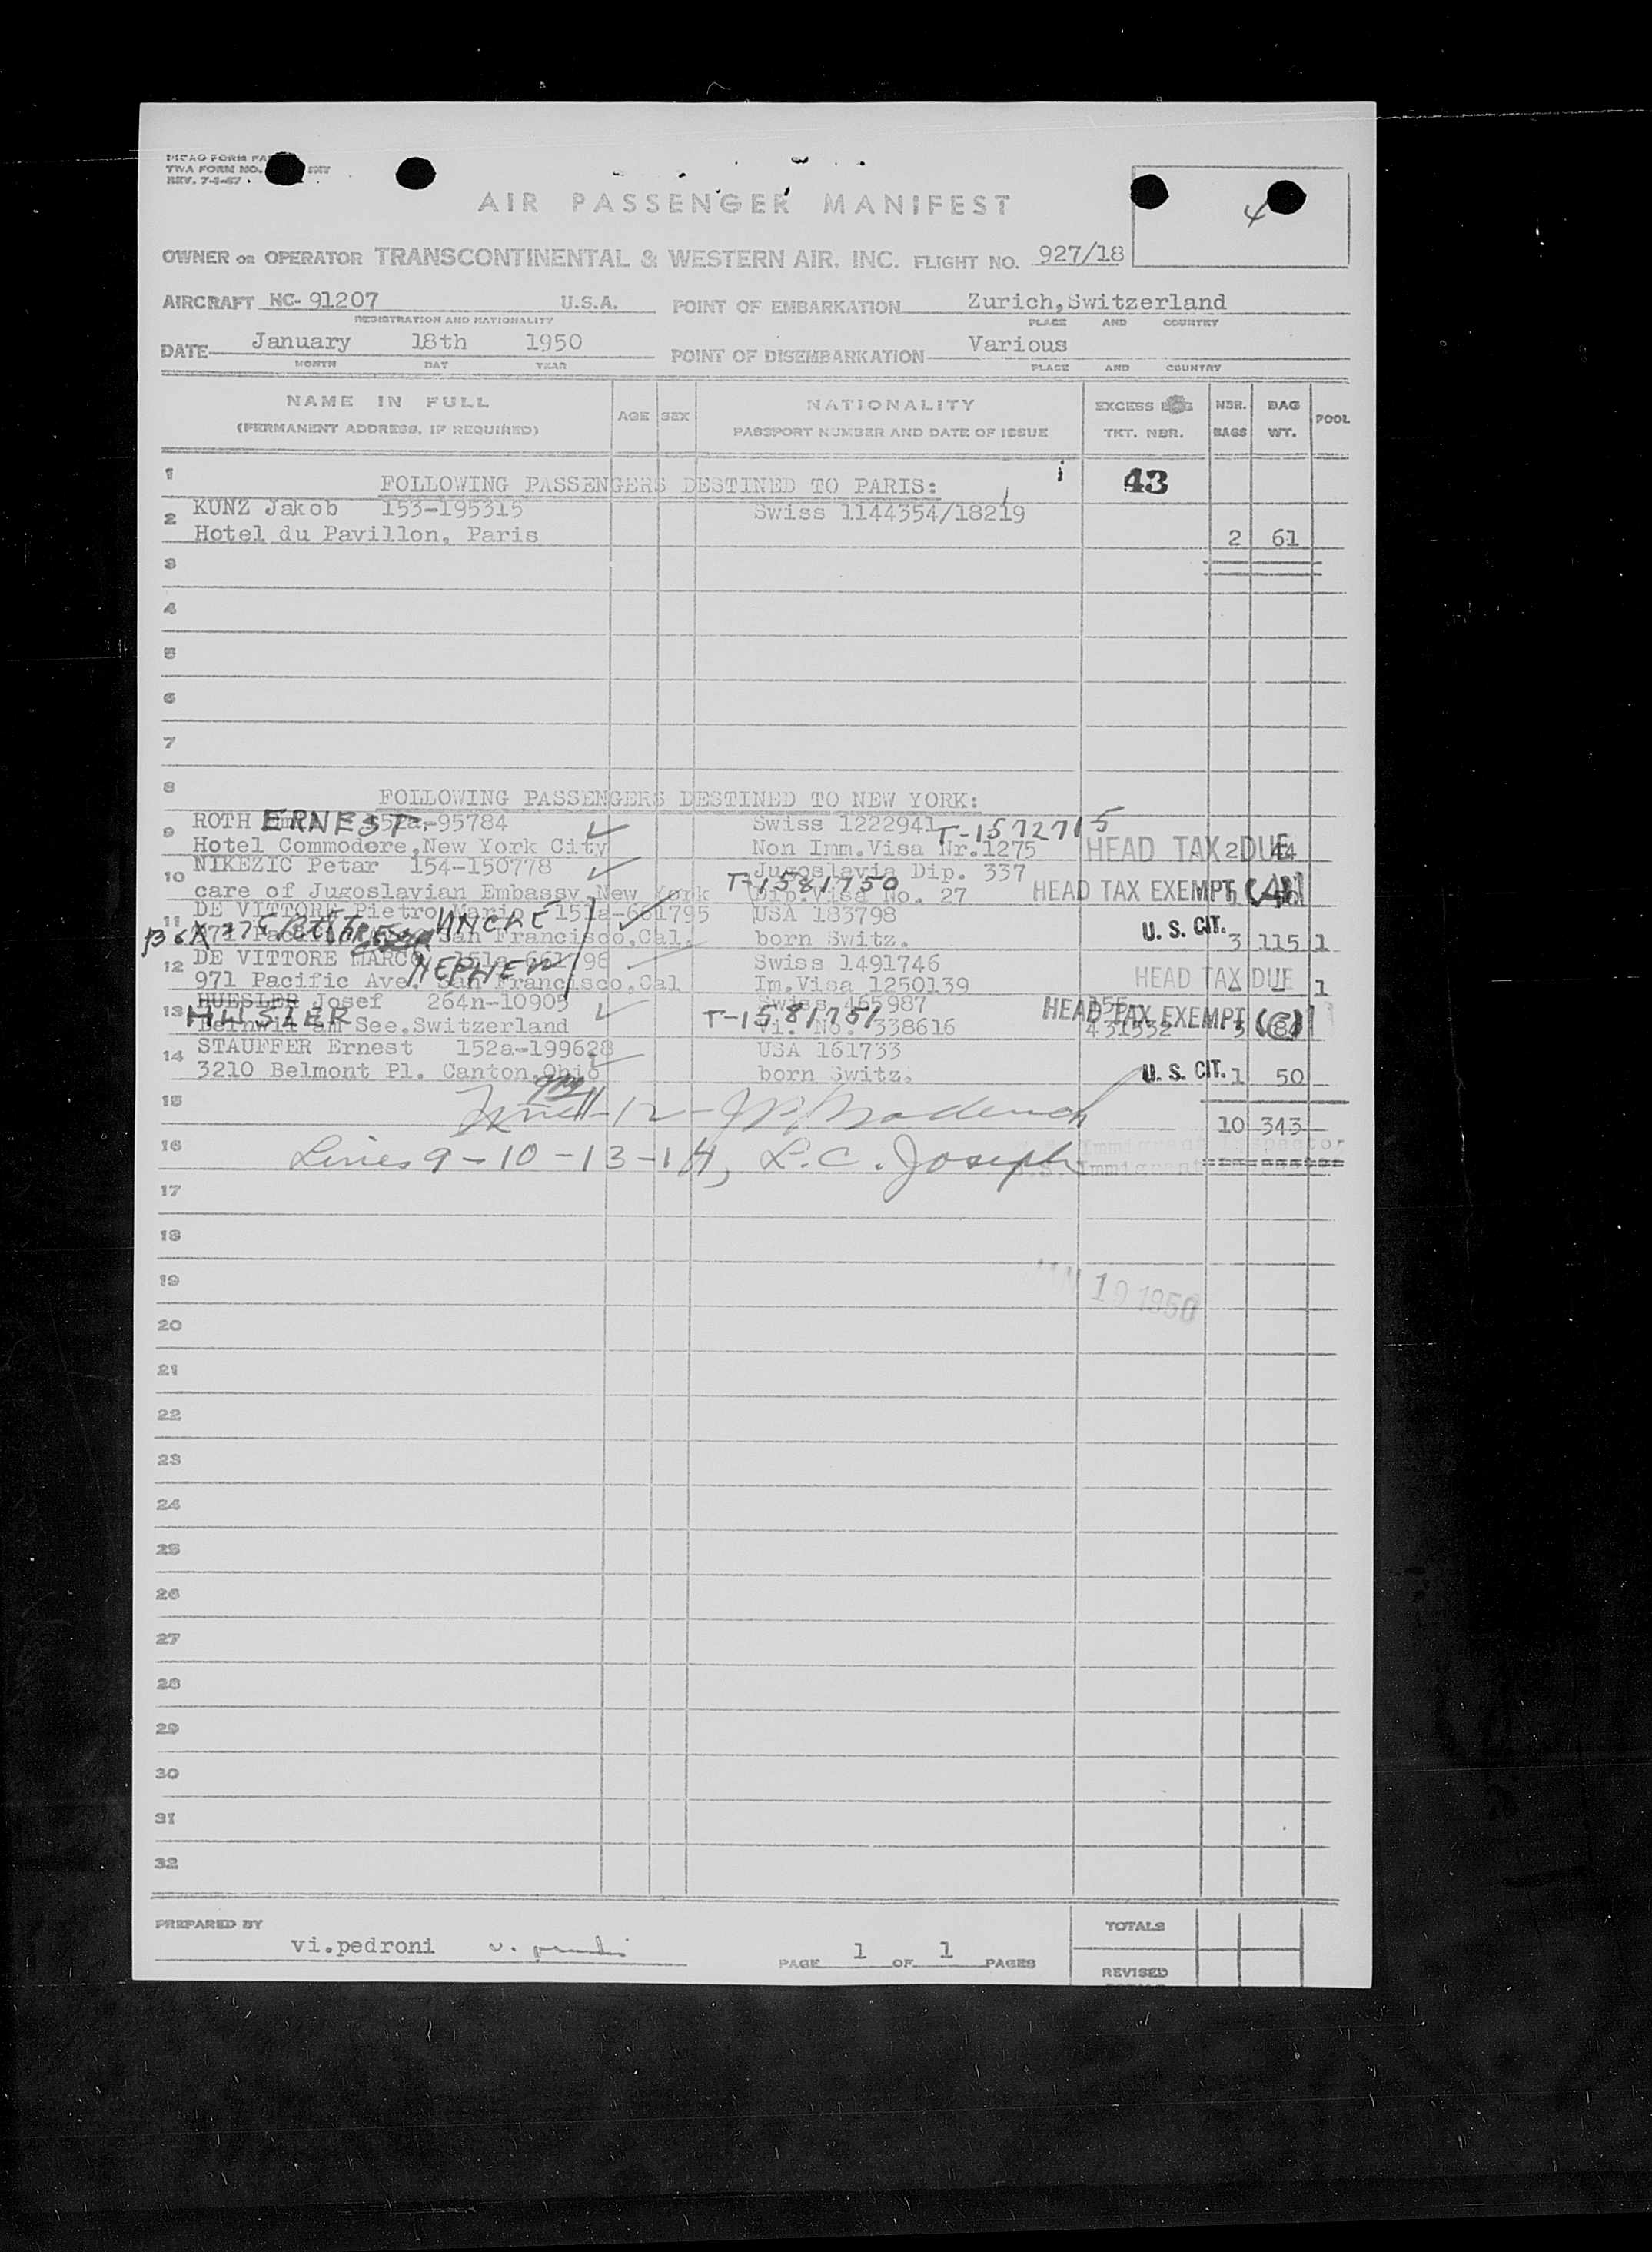 TWA FORM NO.
REV. 7-1-47
AIR PASSENGER MANIFEST
4
OWNER OR OPERATOR TRANSCONTINENTAL & WESTERN AIR, INC. FLIGHT NO. 927/18
AIRCRAFT NC- 91207 U.S.A. POINT OF EMBARKATION Zurich,Switzerland
REGISTRATION AND NATIONALITY PLACE AND COUNTRY
DATE January 18th 1950 POINT OF DISEMBARKATION Various
MONTH DAY YEAR PLACE AND COUNTRY
NAME IN FULL AGE SEX NATIONALITY EXCESS NBR. BAG POOL
(PERMANENT ADDRESS, IF REQUIRED) PASSPORT NUMBER AND DATE OF ISSUE TKT. NBR. BAGS WT.
1 FOLLOWING PASSENGERS DESTINED TO PARIS: 43
2 KUNZ Jakob 153-195315 Swiss 1144354/18219
Hotel du Pavillon, Paris 2 61
3
4
5
6
7
8 FOLLOWING PASSENGERS DESTINED TO NEW YORK:
9 ROTH ERNEST -95784 Swiss 1222941 T-1572715
Hotel Commodore,New York City Non Imm.Visa Nr.1275 HEAD TAX DUE 2 44
10 NIKEZIC Petar 154-150778 Jugoslavia Dip. 337
care of Jugoslavian Embassy,New York T-1581750 Dip.Visa No. 27 HEAD TAX EXEMPT
11 DE VITTORE Pietro Mario 151a-661795 UNCLE USA 183798
San Francisco,Cal. born Switz. U. S. CIT. 3 115 1
12 DE VITTORE MARCO NEPHEW Swiss 1491746
971 Pacific Ave. San Francisco,Cal Im.Visa 1250139 HEAD TAX DUE 1
13 HUESLER Josef 264n-10905 Swiss 465987
HUSLER See,Switzerland T-1581751 Vi. No. 338616 HEAD TAX EXEMPT 431532 3
14 STAUFFER Ernest 152a-199628 USA 161733
3210 Belmont Pl. Canton,Ohio born Switz. U. S. CIT. 1 50
15 10 343
16 Lines 9-10-13-14, L.C. Joseph
17
18
19 JAN 19 1950
20
21
22
23
24
25
26
27
28
29
30
31
32
PREPARED BY TOTALS
vi.pedroni PAGE 1 OF 1 PAGES
REVISED